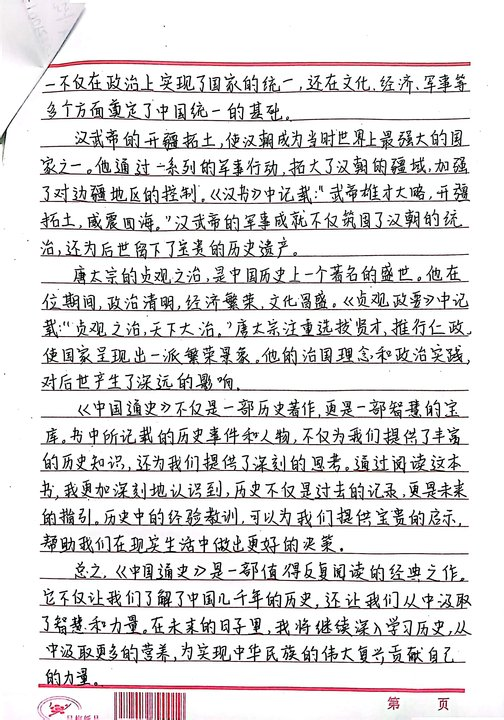 一不仅在政治上实现了国家的统一，还在文化、经济、军事等
多个方面奠定了中国统一的基础。
汉武帝的开疆拓土，使汉朝成为当时世界上最强大的国
家之一。他通过一系列的军事行动，拓大了汉朝的疆域，加强
了对边疆地区的控制。《汉书》中记载：“武帝雄才大略，开疆
拓土，威震四海。”汉武帝的军事成就不仅巩固了汉朝的统
治，还为后世留下了宝贵的历史遗产。
唐太宗的贞观之治，是中国历史上一个著名的盛世。他在
位期间，政治清明，经济繁荣，文化昌盛。《贞观政要》中记
载：“贞观之治，天下大治。”唐太宗注重选拔贤才，推行仁政，
使国家呈现出一派繁荣景象。他的治国理念和政治实践，
对后世产生了深远的影响。
《中国通史》不仅是一部历史著作，更是一部智慧的宝
库。书中所记载的历史事件和人物，不仅为我们提供了丰富
的历史知识，还为我们提供了深刻的思考。通过阅读这本
书，我更加深刻地认识到，历史不仅是过去的记录，更是未来
的指引。历史中的经验教训，可以为我们提供宝贵的启示，
帮助我们在现实生活中做出更好的决策。
总之，《中国通史》是一部值得反复阅读的经典之作。
它不仅让我们了解了中国几千年的历史，还让我们从中汲取
了智慧和力量。在未来的日子里，我将继续深入学习历史，从
中汲取更多的营养，为实现中华民族的伟大复兴贡献自己
的力量。
第 页